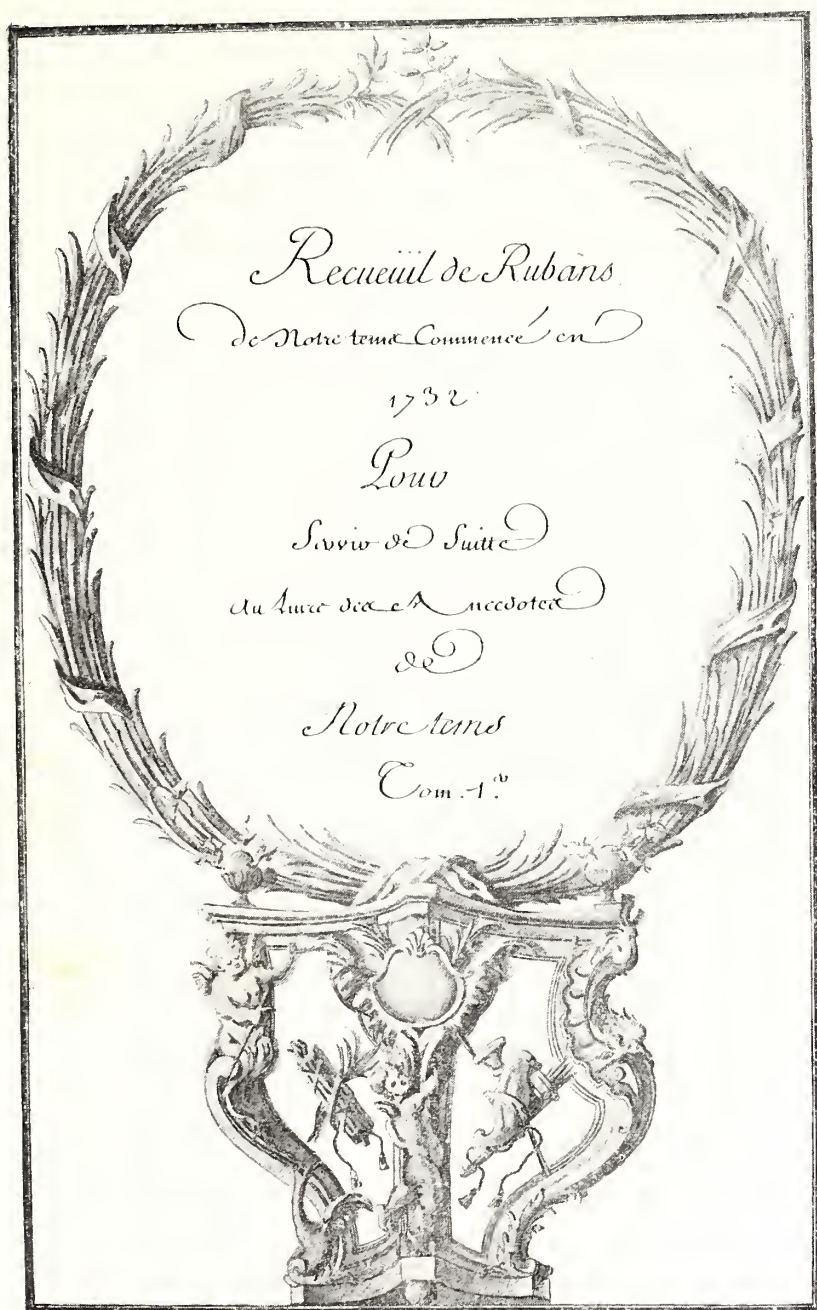 Recueüil de Rubans
de Notre tems Commencé en
1732
Pour
Servir de Suitte
Au Livre des Anecdotes
de
Notre tems
Tom. 1.er